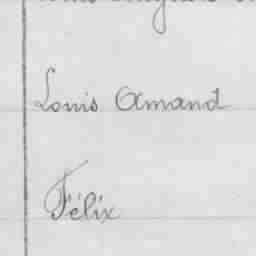 Louis Amand
Félix